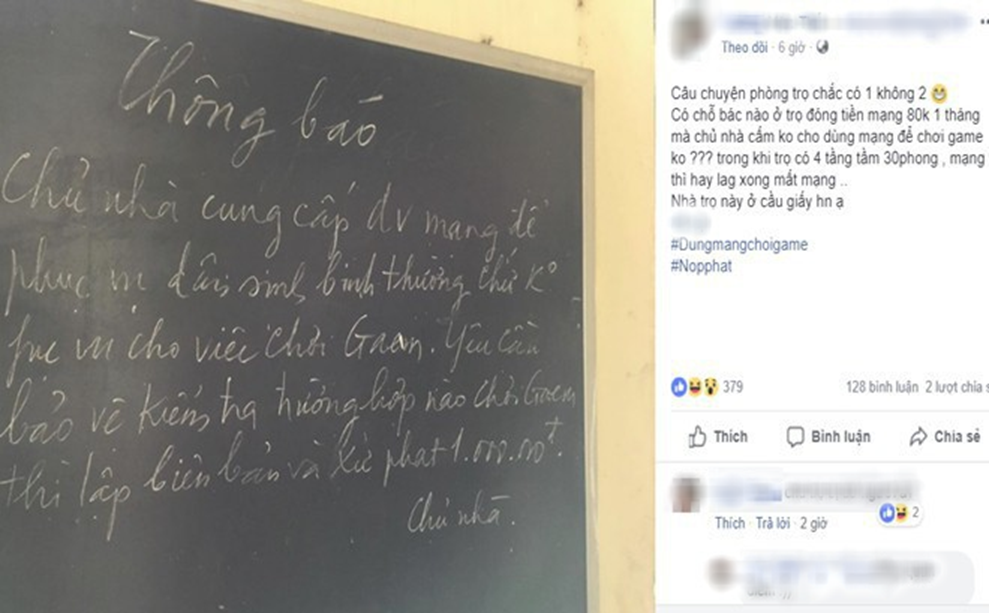 Thông báo
Chủ nhà cung cấp dv mạng để
phục vụ dân sinh bình thường chứ K°
fục vụ cho việc chơi Gaem. Yêu cầu
bảo vệ kiểm tra trường hợp nào chơi Gaem
thì lập biên bản và xử phạt 1.000.00đ.
Chủ nhà.
Theo dõi · 6 giờ ·
Câu chuyện phòng trọ chắc có 1 không 2 😁
Có chỗ bác nào ở trọ đóng tiền mạng 80k 1 tháng
mà chủ nhà cấm ko cho dùng mạng để chơi game
ko ??? trong khi trọ có 4 tầng tầm 30phong , mạng
thì hay lag xong mất mạng ..
Nhà trọ này ở cầu giấy hn ạ
#Dungmangchoigame
#Nopphat
379
128 bình luận 2 lượt chia s
Thích
Bình luận
Chia sẻ
Thích · Trả lời · 2 giờ
2